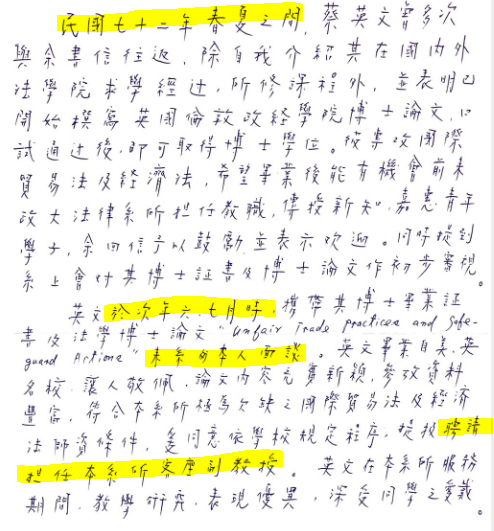 民國七十二年春夏之間，蔡英文曾多次
與余書信往返，除自我介紹其在國內外
法學院求學經過，所修課程外，並表明已
開始撰寫英國倫敦政經學院博士論文，口
試通過後，即可取得博士學位。彼專攻國際
貿易法及經濟法，希望畢業後能有機會前來
政大法律系所担任教職，傳授新知，嘉惠青年
學子，余回信予以鼓勵並表示欢迎。同時提到
系上會對其博士証書及博士論文作初步審視。
英文於次年六、七月時，携帶其博士畢業証
書及法學博士論文"Unfair Trade practices and Safe-
guard Actions"來系与本人面談。英文畢業自美、英
名校，讓人敬佩，論文內容充實新穎，參攷資料
豐富，符合本系所極為欠缺之國際貿易法及經濟
法師資條件，爰同意依學校規定程序，提报聘請
担任本系所客座副教授。英文在本系所服務
期間，教學研究，表現優異，深受同學之愛戴
。